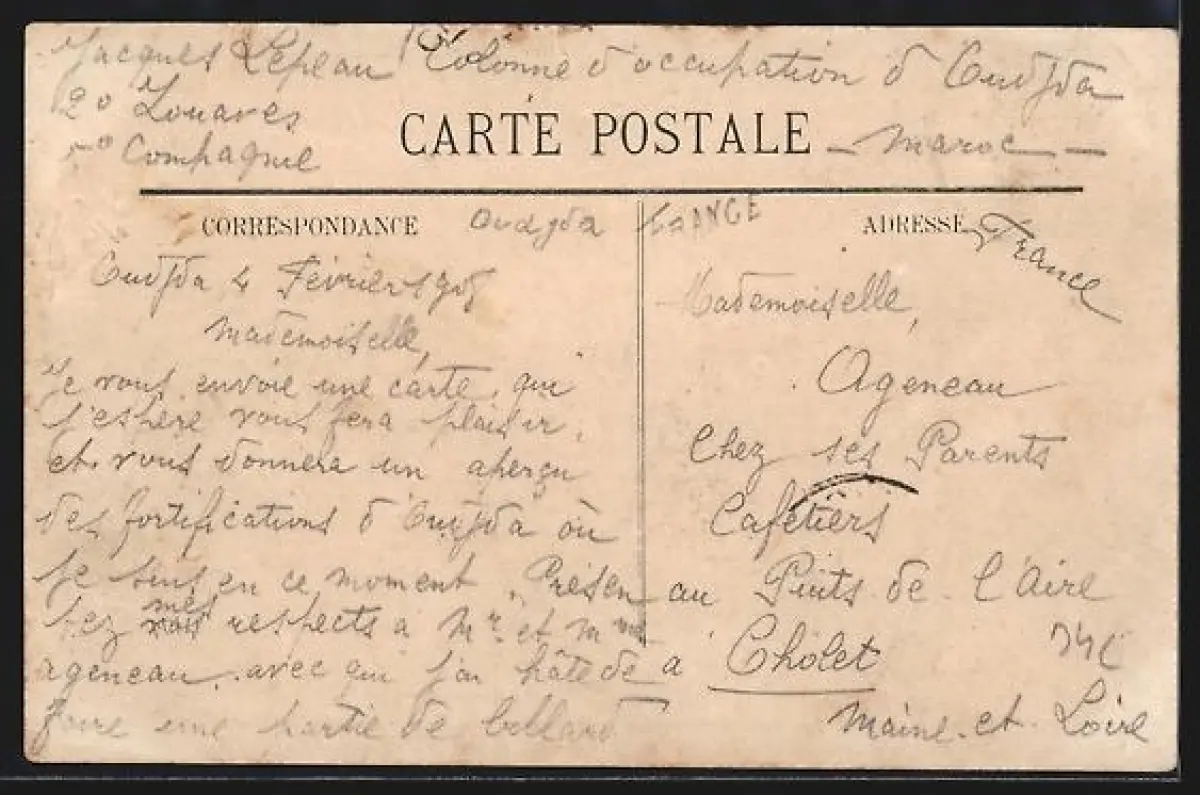 Jacques Lepeau Colonne d'occupation d'Oudjda
2º Zouaves
5º Compagnie
CARTE POSTALE
- Maroc -
CORRESPONDANCE
Oudjda
FRANCE
ADRESSE
France
Oudjda 4 Février 1908
Mademoiselle,
Je vous envoie une carte, qui
j'espère vous fera plaisir,
et vous donnera un aperçu
des fortifications d'Oudjda où
je suis en ce moment. Présen
tez mes respects à Mr. et Mme
Ageneau. avec qui j'ai hâte de
faire une partie de billard
Mademoiselle,
Ageneau
Chez ses Parents
Cafetiers
au Puits de l'Aire
à Cholet
Maine-et-Loire